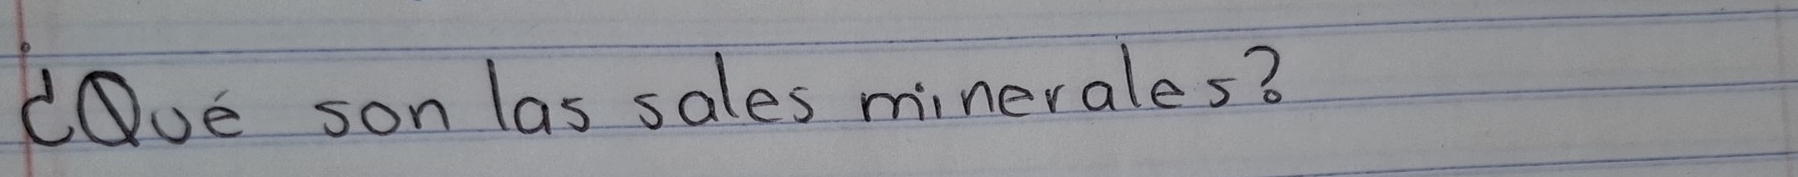 ¿Qué son las sales minerales?